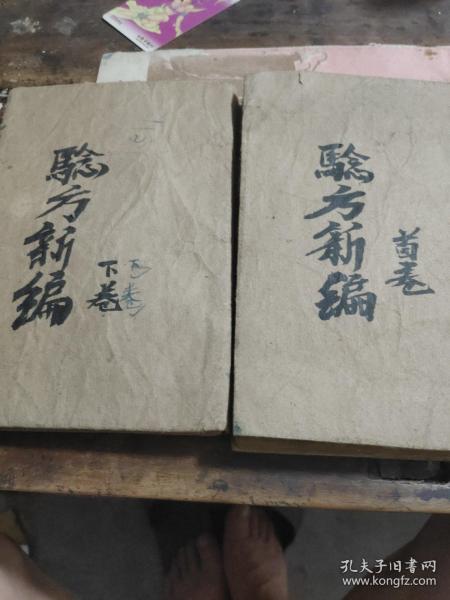 騐方新編
下卷
下卷
騐方新編
首卷
孔夫子旧书网
www.kongfz.com